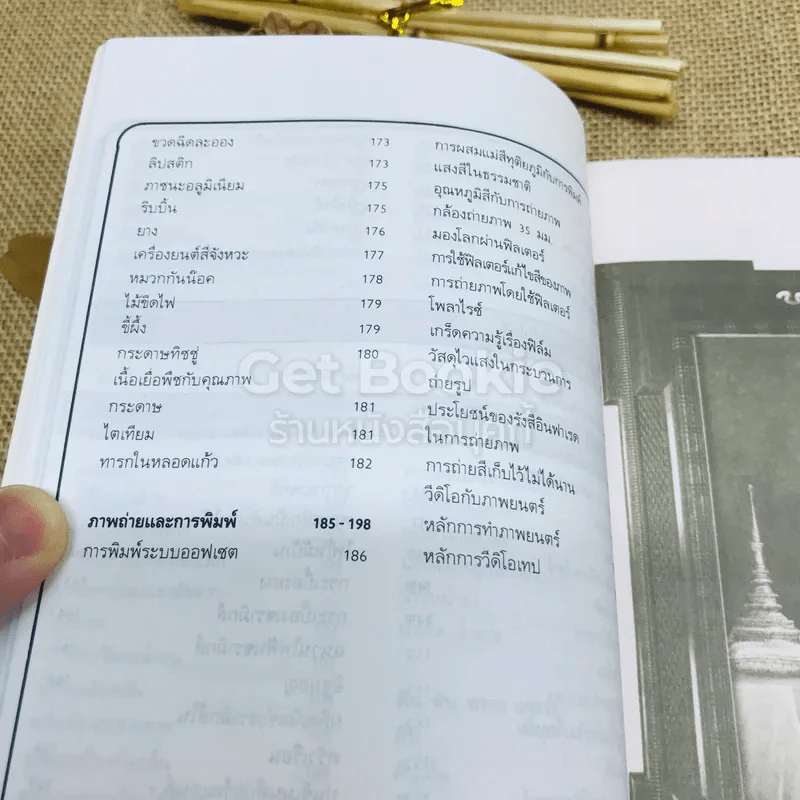 ขวดฉีดละออง 173
ลิปสติก 173
ภาชนะอลูมิเนียม 175
ริบบิ้น 175
ยาง 176
เครื่องยนต์สี่จังหวะ 177
หมวกกันน๊อค 178
ไม้ขีดไฟ 179
ขี้ผึ้ง 179
กระดาษทิชชู่ 180
เนื้อเยื่อพืชกับคุณภาพ
กระดาษ 181
ไตเทียม 181
ทารกในหลอดแก้ว 182
ภาพถ่ายและการพิมพ์ 185-198
การพิมพ์ระบบออฟเซต 186
การผสมแม่สีทุติยภูมิกับการพิมพ์
แสงสีในธรรมชาติ
อุณหภูมิสีกับการถ่ายภาพ
กล้องถ่ายภาพ 35 มม.
มองโลกผ่านฟิลเตอร์
การใช้ฟิลเตอร์แก้ไขสีของภาพ
การถ่ายภาพโดยใช้ฟิลเตอร์
โพลาไรซ์
เกร็ดความรู้เรื่องฟิล์ม
วัสดุไวแสงในกระบวนการ
ถ่ายรูป
ประโยชน์ของรังสีอินฟาเรด
ในการถ่ายภาพ
การถ่ายสีเก็บไว้ไม่ได้นาน
วีดิโอกับภาพยนตร์
หลักการทำภาพยนตร์
หลักการวีดิโอเทป
Get Bookie
ร้านหนังสือบุคกี้